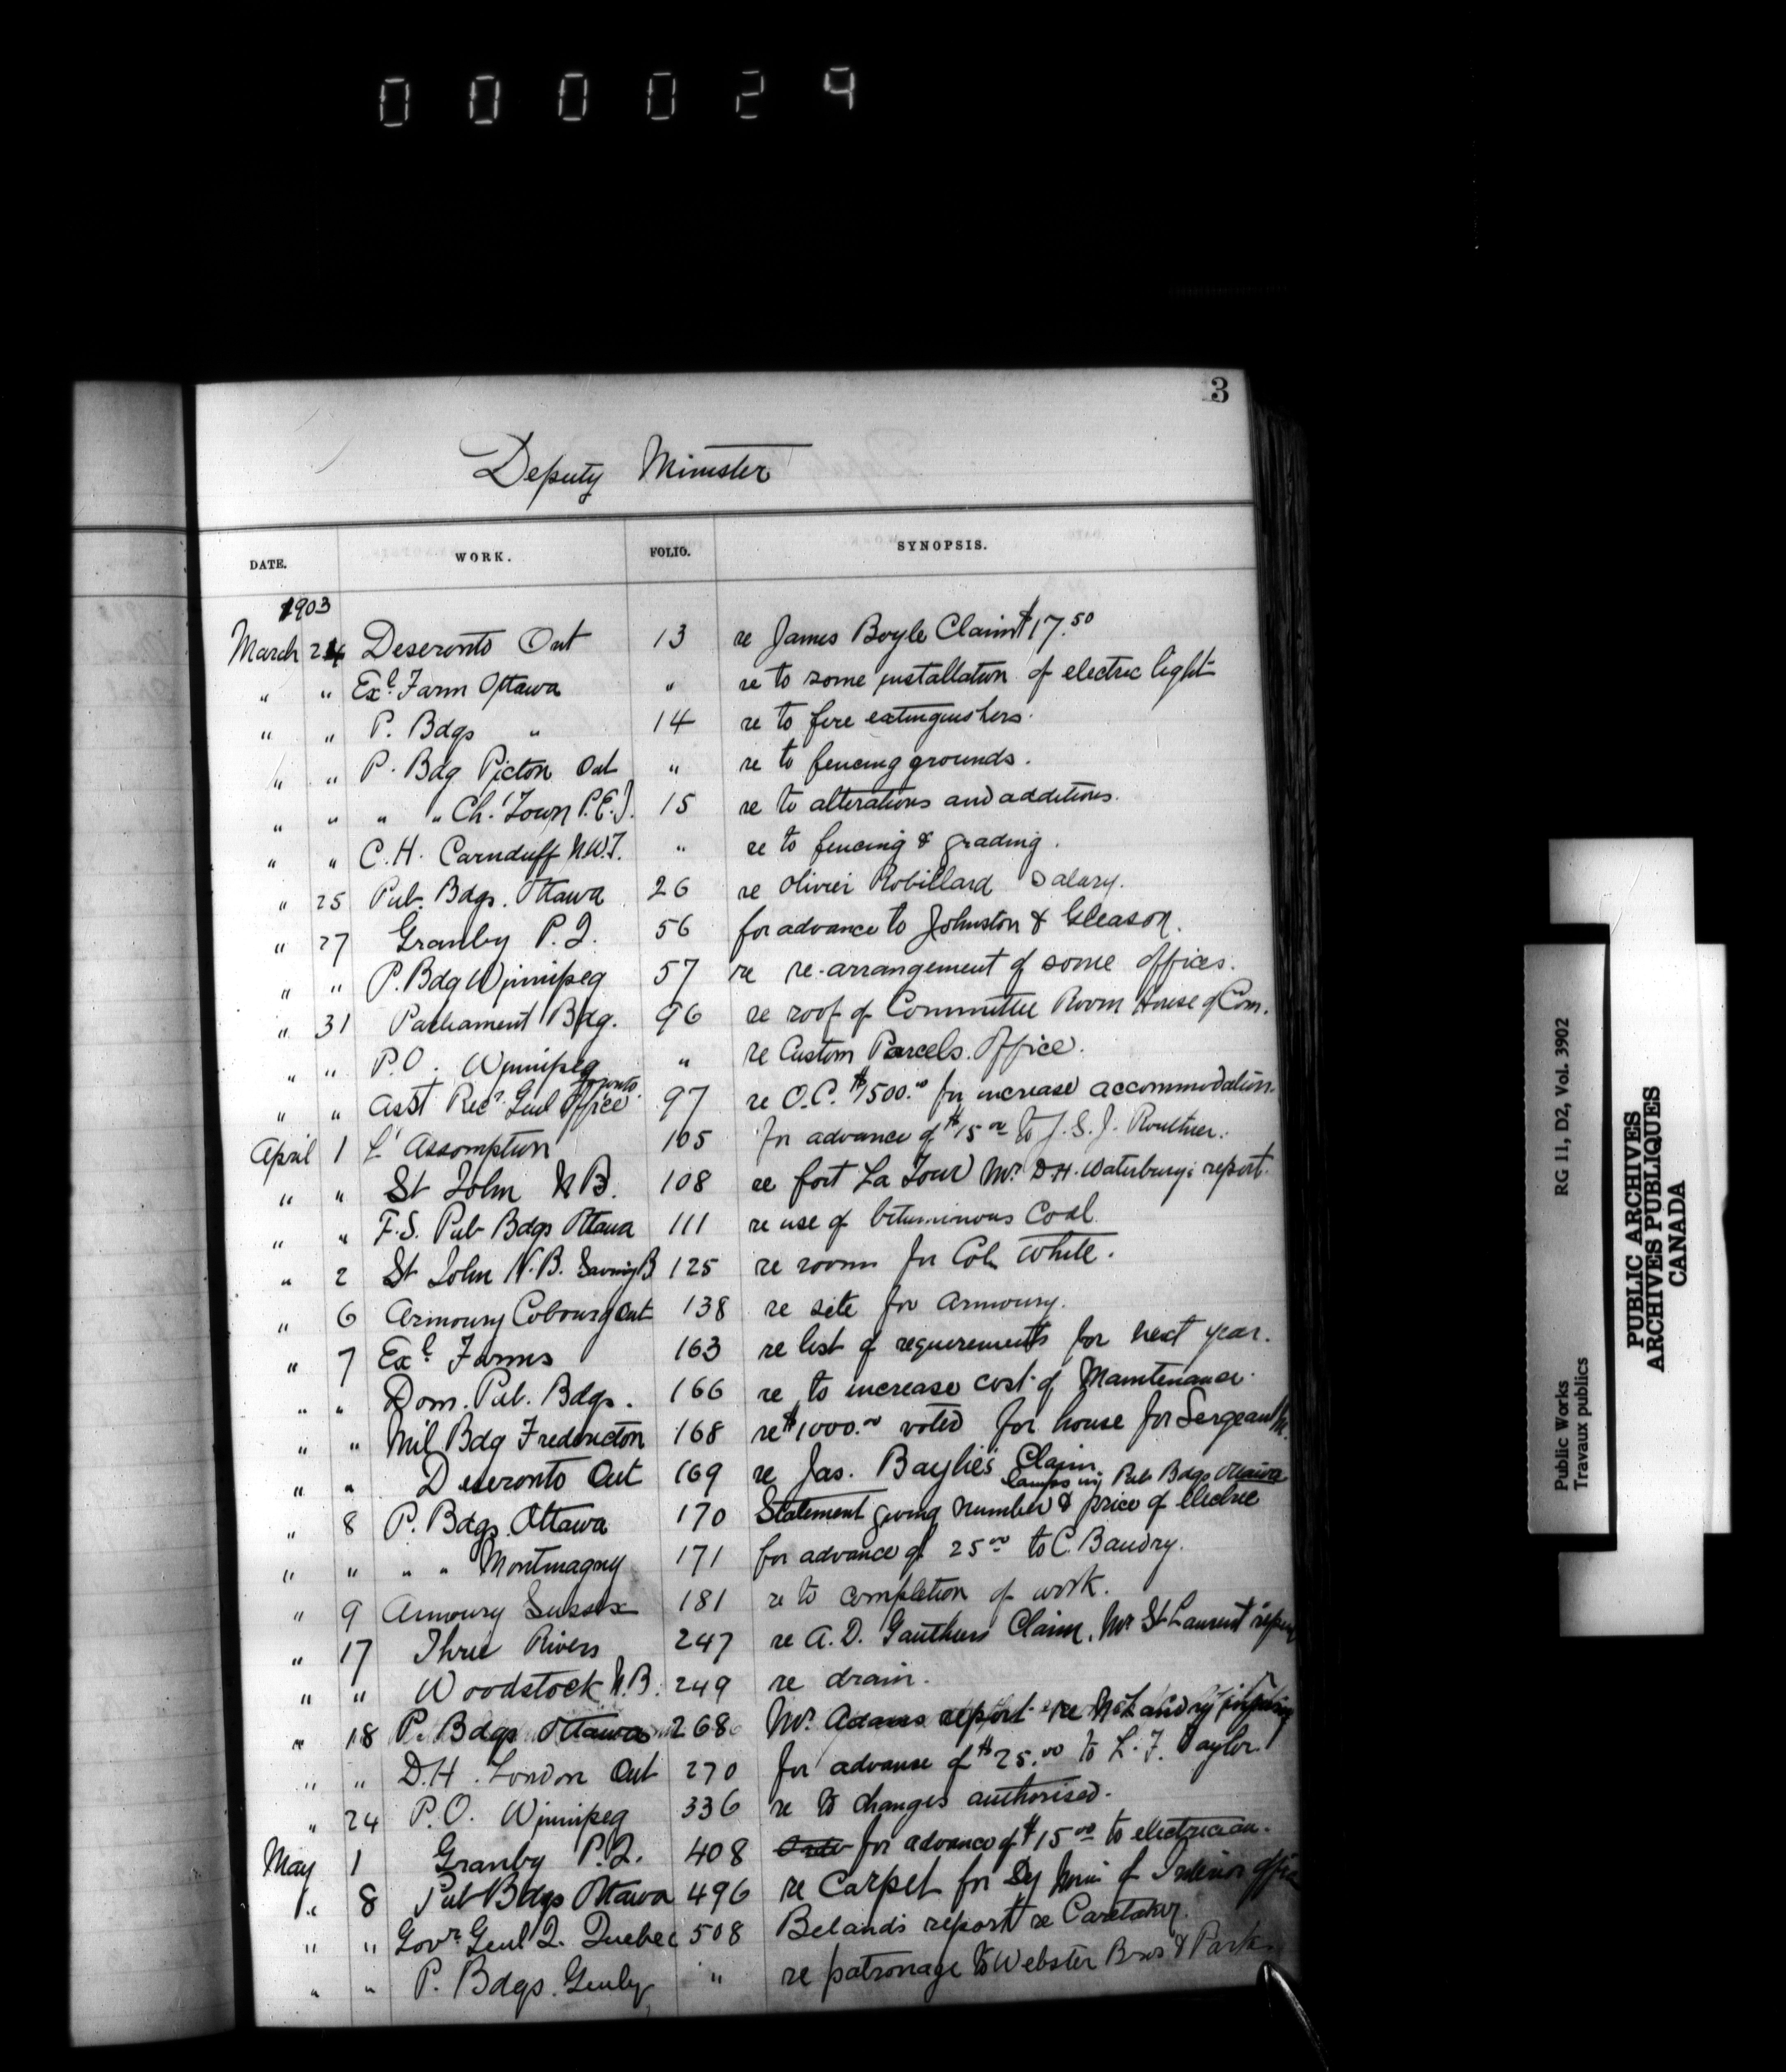 000029
3
Deputy Minister
DATE. WORK. FOLIO. SYNOPSIS.
1903
March 24 Deseronto Ont 13 re James Boyle Claim $17.50
" " Exl. Farm Ottawa " re to some installation of electric light
" " P. Bdgs " 14 re to fire extinguishers.
" " P. Bdg Picton Ont " re to fencing grounds.
" " " " Ch. Town P.E.I. 15 re to alterations and additions.
" " C.H. Carnduff N.W.T. " re to fencing & grading.
" 25 Pub. Bdgs. Ottawa 26 re Olivier Robillard Salary.
" 27 Granby P.Q. 56 for advance to Johnston & Gleason.
" " P. Bdg Winnipeg 57 re re-arrangement of some offices.
" 31 Parliament Bdg. 96 re roof of Committee Room House of Com.
" " P.O. Winnipeg " re Custom Parcels Office.
" " Asst Recr. Genl Office Toronto 97 re O.C. $1500.00 for increase accommodation.
April 1 L'Assomption 105 for advance of $15.00 to J.S.J. Routhier.
" " St John N.B. 108 re fort La Tour Mr. D.H. Waterbury's report.
" " F.S. Pub Bdgs Ottawa 111 re use of bituminous Coal.
" 2 St John N.B. Saving B 125 re rooms for Col White.
" 6 Armoury Cobourg Ont 138 re site for Armoury.
" 7 Exl. Farms 163 re list of requirements for next year.
" " Dom. Pub. Bdgs. 166 re to increase cost of Maintenance.
" " Mil Bdg Fredericton 168 re $1000.00 voted for house for Sergeant M.
" " Deseronto Ont 169 re Jas. Baylies Claim
" 8 P. Bdgs. Ottawa 170 Statement giving number & price of electric lamps in Pub Bdgs Ottawa
" " " " Montmagny 171 for advance of 25.00 to C. Baudry.
" 9 Armoury Sussex 181 re to completion of work.
" 17 Three Rivers 247 re A.D. Gauthiers Claim, Mr St Laurent report
" " Woodstock N.B. 249 re drain.
" 18 P. Bdgs Ottawa 268 Mr. Adams report re Mr Landry
" " D.H. London Ont 270 for advance of $25.00 to L.F. Taylor
" 24 P.O. Winnipeg 336 re to changes authorised.
May 1 Granby P.Q. 408 for advance of $15.00 to electrician.
" 8 Pub Bdgs Ottawa 496 re Carpet for Dy Min of Interior office
" " Govr. Genl Q. Quebec 508 Belands report re Caretaker.
" " P. Bdgs. Genly " re patronage to Webster Bros & Parkes
Public Works RG 11, D2, Vol. 3902
Travaux publics
PUBLIC ARCHIVES
ARCHIVES PUBLIQUES
CANADA